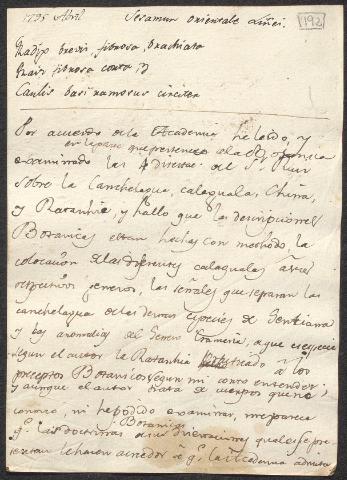 1795 Abril Sesamum orientale Linei. [192]
Radix brevis fibrosa brachiata
fibrosa
Caulis basi ramosus circiter
Por acuerdo de la Academia he leido, y
en la parte que pertenece a la Botanica
examinado las 4 disertac. del Sr. Ruiz
sobre la Canchelagua, calaguala, China,
y Ratanhia, y hallo que las descripciones
Botanicas estan hechas con methodo, la
colocacion de las diferentes calagualas a sus
respectivos generos, las señales que separan la
canchelagua de las demas especies de Gentiana
y las anomalias del Genero Krameria, a que
segun el autor la Ratanhia a los
preceptos Botanicos segun mi corto entender;
y aunque el autor trata de cuerpos que no
conozco, ni he podido examinar, me parece
Botanicas
q.e las doctrinas disertaciones
le hacen acreedor a q.e la Academia admita